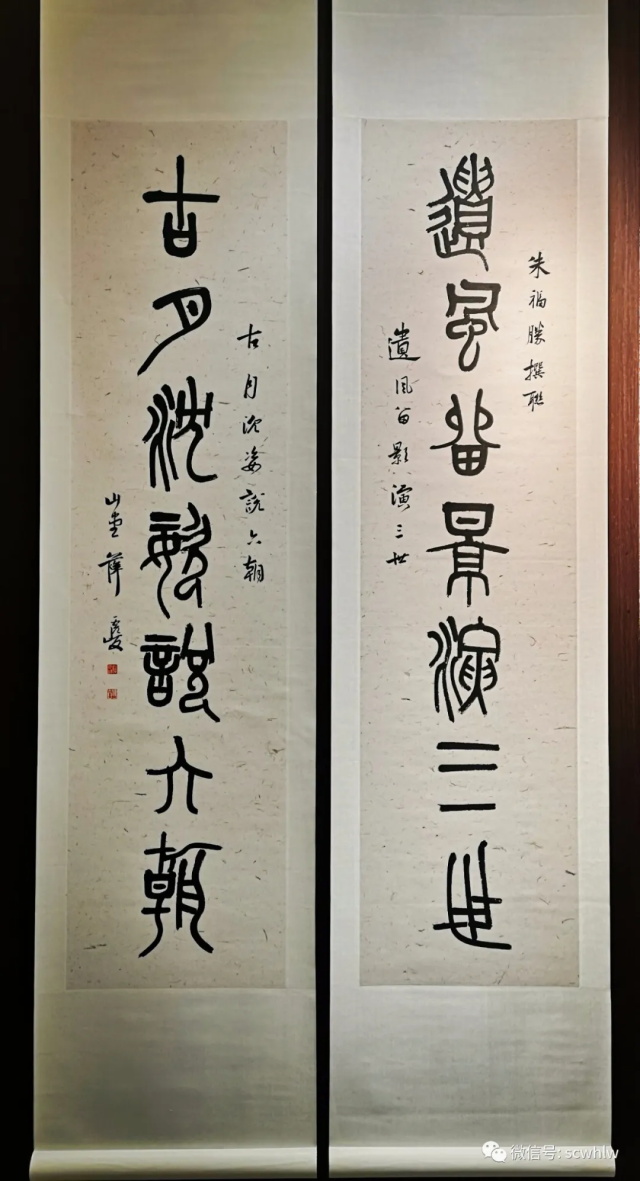 朱福勝撰聯
遺風留景演三世
遺風留影演三世
古月沈姿説六朝
古月沈姿説六朝
山 薛
微信号: scwhlw